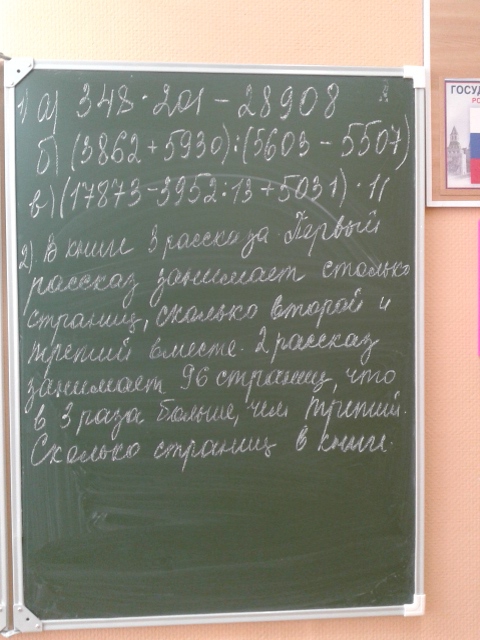 1) а) 348·201 – 28908
б) (3862 + 5930):(5603 – 5507)
в) (17873–3952:13+5031)·11
2) В книге 3 рассказа. Первый
рассказ занимает столько
страниц, сколько второй и
третий вместе. 2 рассказ
занимает 96 страниц, что
в 3 раза больше, чем третий.
Сколько страниц в книге.
ГОСУ